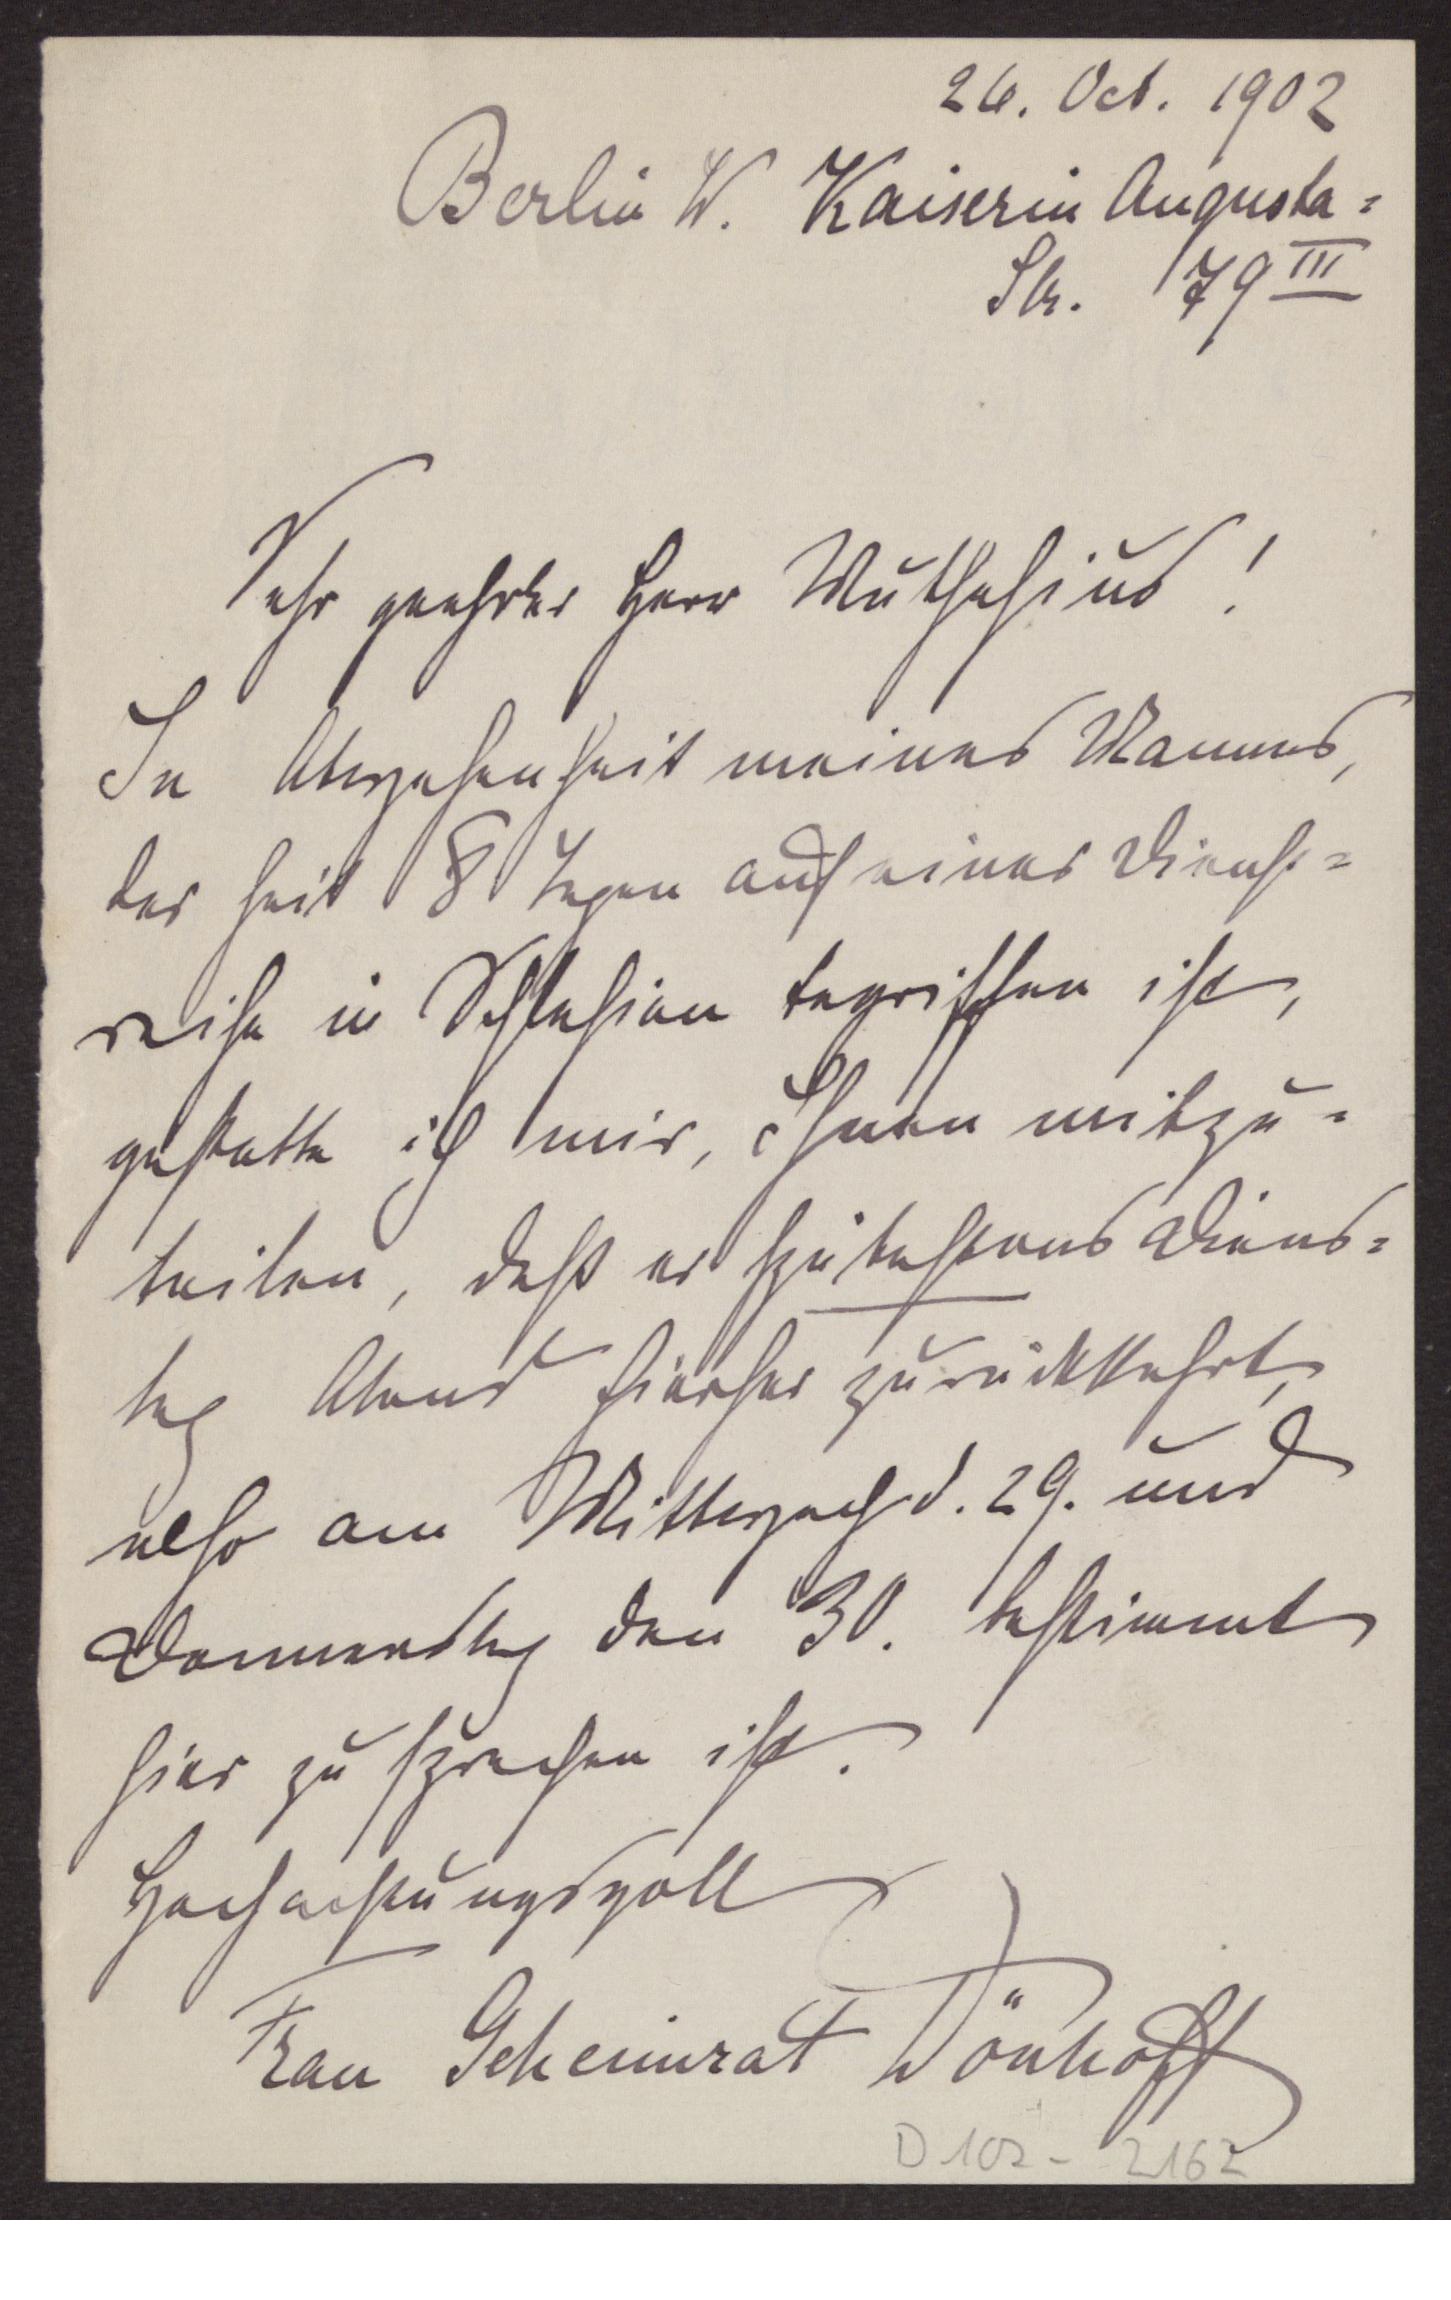 26. Oct. 1902
Berlin W. Kaiserin Augusta=
Str. 79 III
Sehr geehrter Herr Muthesius!
In Abwesenheit meines Mannes,
der seit 8 Tagen auf einer Dienst=
reise in Schlesien begriffen ist,
gestatte ich mir, Ihnen mitzu=
teilen, daß er spätestens Diens=
tag Abend hierher zurückkehrt,
also am Mittwoch d. 29. und
Donnerstag den 30. bestimmt
hier zu sprechen ist.
Hochachtungsvoll
Frau Geheimrat Dönhoff
D 102-2162